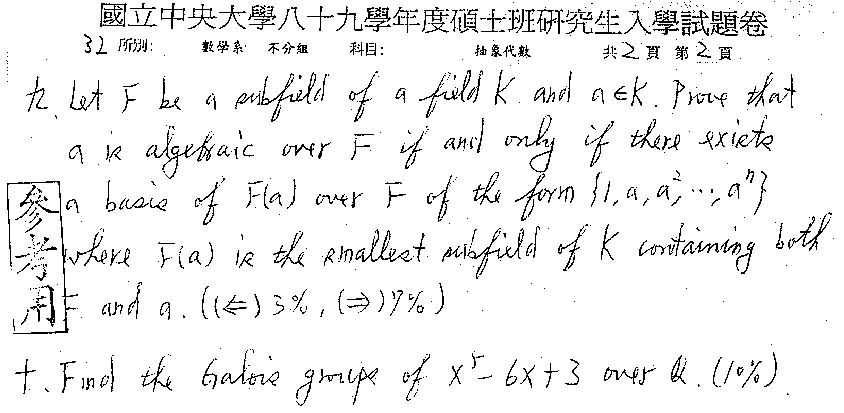 國立中央大學八十九學年度碩士班研究生入學試題卷
32 所別: 數學系 不分組 科目: 抽象代數 共2頁 第2頁
九. Let F be a subfield of a field K and a∈K. Prove that
a is algebraic over F if and only if there exists
a basis of F(a) over F of the form {1, a, a², ..., aⁿ}
where F(a) is the smallest subfield of K containing both
F and a. ((⇐) 3%, (⇒) 7%)
參考用
十. Find the Galois groups of x⁵ - 6x + 3 over Q. (10%)